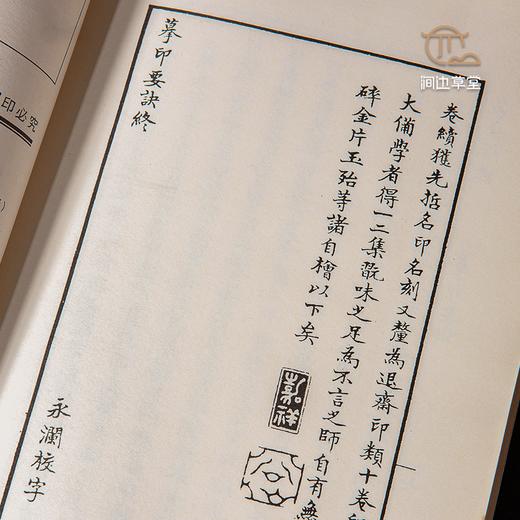 卷續獲先哲名印名刻又釐為退齋印類十卷
大備學者得一二集翫味之足為不言之師自有
碎金片玉殆等諸自檜以下矣
嘉祥
摹印要訣終
永瀾校字
印必究
洄边草堂